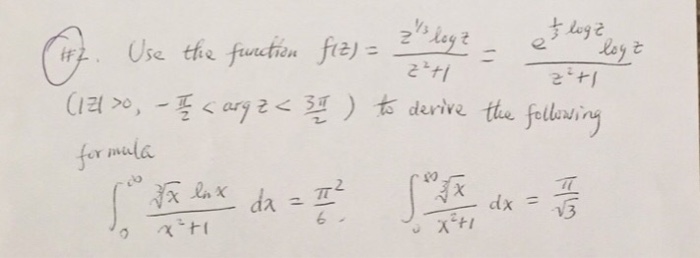 #2. Use the function f(z) = z^{1/3} log z / (z²+1) = e^{1/3 log z} log z / (z²+1)
(|z| >0, -π/2 < arg z < 3π/2) to derive the following
formula
∫₀^∞ ∛x ln x / (x²+1) dx = π²/6. ∫₀^∞ ∛x / (x²+1) dx = π/√3